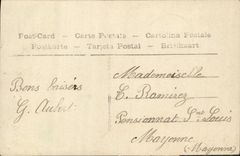 Post-Card — Carte Postale — Cartolina Postale
Postkarte — Tarjeta Postal — Briefkaart
Bons baisers
G. Aubert
Mademoiselle
C. Ramirez
Pensionnat St Louis
Mayenne
(Mayenne)